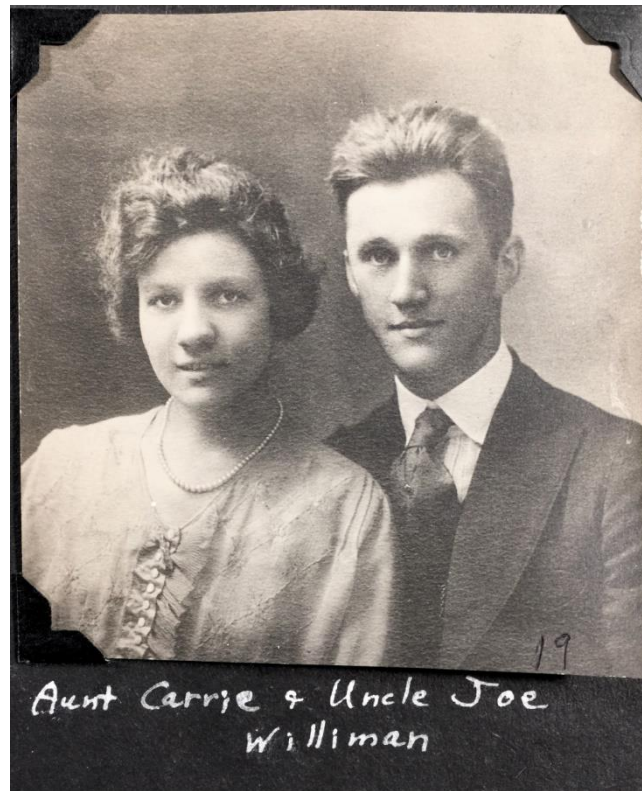 19
Aunt Carrie & Uncle Joe
Williman